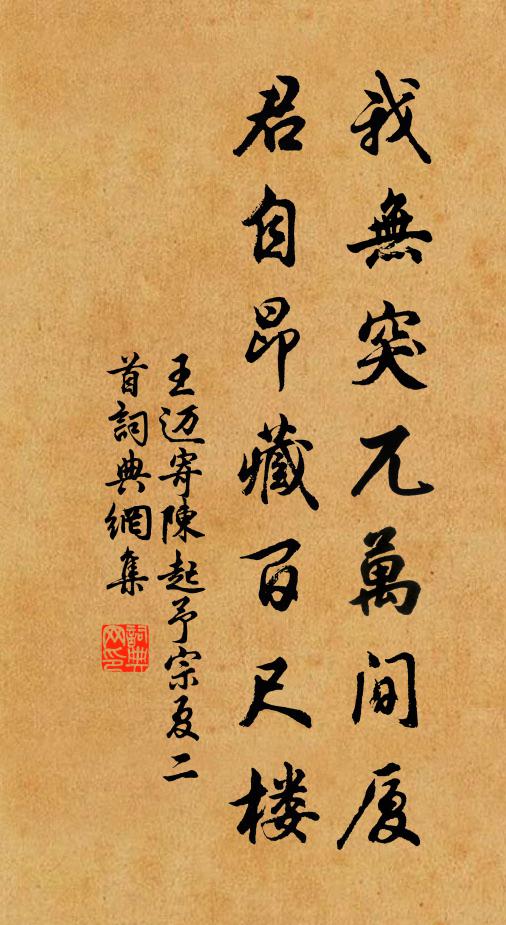 我無突兀萬间厦
君自昂藏百尺楼
王迈寄陳起予宗夏二
首詞典網集
詞典
网印